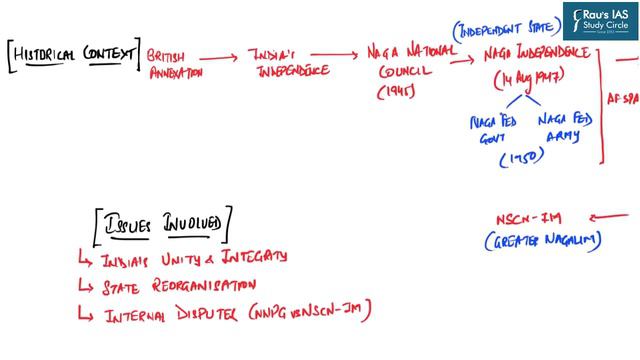 Rau's IAS
Study Circle
Since 1953
(INDEPENDENT STATE)
[HISTORICAL CONTEXT]
BRITISH
ANNEXATION
INDIA'S
INDEPENDENCE
NAGA NATIONAL
COUNCIL
(1945)
NAGA INDEPENDENCE
(14 Aug 1947)
NAGA FED
GOVT
NAGA FED
ARMY
(1950)
AFSPA
[ISSUES INVOLVED]
INDIA'S UNITY & INTEGRATY
STATE REORGANISATION
INTERNAL DISPUTES (NNPG vs NSCN-IM)
NSCN-IM
(GREATER NAGALIM)